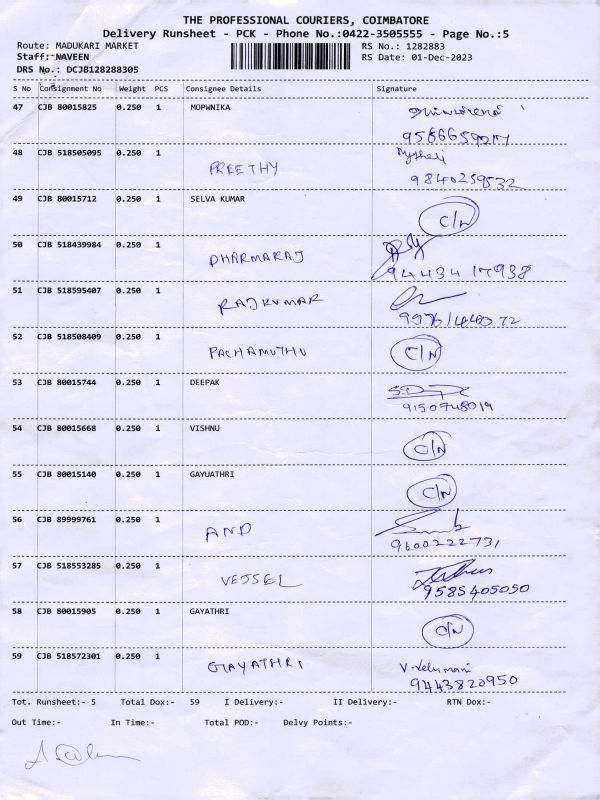 THE PROFESSIONAL COURIERS, COIMBATORE
Delivery Runsheet - PCK - Phone No.:0422-3505555 - Page No.:5
Route: MADUKARI MARKET RS No.: 1282883
Staff:-NAVEEN RS Date: 01-Dec-2023
DRS No.: DCJB128288305
S No Consignment No Weight PCS Consignee Details Signature
47 CJB 80015825 0.250 1 MOPWNIKA
48 CJB 518505095 0.250 1 PREETHY
9840259532
49 CJB 80015712 0.250 1 SELVA KUMAR C/N
50 CJB 518439984 0.250 1 DHARMARAJ
94434 17938
51 CJB 518595407 0.250 1 RAJKUMAR
52 CJB 518508409 0.250 1 PACHAMUTHU C/N
53 CJB 80015744 0.250 1 DEEPAK
9150748019
54 CJB 80015668 0.250 1 VISHNU C/N
55 CJB 80015140 0.250 1 GAYUATHRI C/N
56 CJB 89999761 0.250 1 AND
9600222731
57 CJB 518553285 0.250 1 VESSEL
9585405050
58 CJB 80015905 0.250 1 GAYATHRI C/N
59 CJB 518572301 0.250 1 GAYATHRI V. Velumani
9443820950
Tot. Runsheet:- 5 Total Dox:- 59 I Delivery:- II Delivery:- RTN Dox:-
Out Time:- In Time:- Total POD:- Delvy Points:-